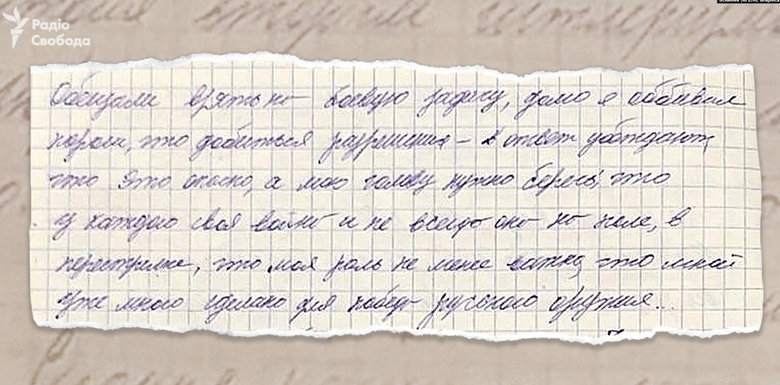 Радіо
Свобода
Обещали взять на боевую задачу, долго я обивал
пороги, что добиться разрешения – в ответ убеждают,
что это опасно, а мою голову нужно беречь, что
у каждого своя война и не всегда она на поле, в
перестрелке, что моя роль не менее важна, что мной
уже много сделано для победы русского оружия...